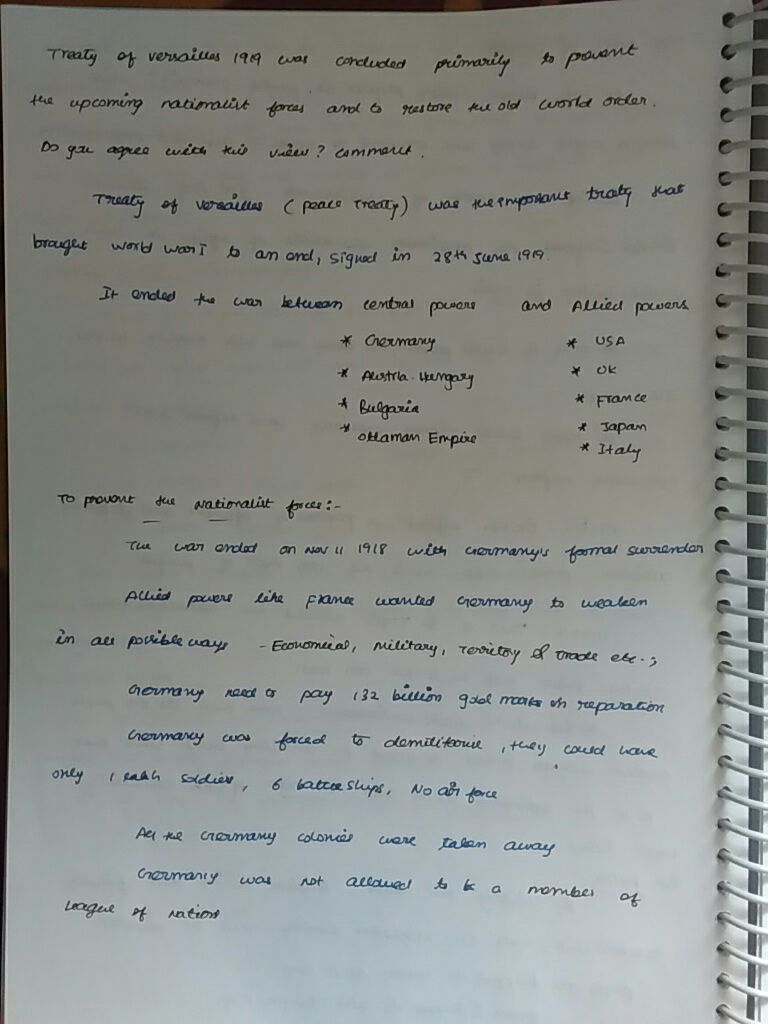 Treaty of versailles 1919 was concluded primarily to prevent
the upcoming nationalist forces and to restore the old world order.
Do you agree with this view? comment.
Treaty of versailles (peace Treaty) was the important treaty that
brought world war I to an end, signed in 28th June 1919.
It ended the war between central powers and Allied powers
* Germany * USA
* Austria-Hungary * UK
* Bulgaria * France
* Ottaman Empire * Japan
* Italy
To prevent the Nationalist forces:-
The war ended on Nov 11 1918 with Germany's formal surrender
Allied powers like France wanted Germany to weaken
in all possible ways - Economical, military, Territory & Trade etc.;
Germany need to pay 132 billion gold marks in reparation
Germany was forced to demilitarise, they could have
only 1 lakh soldiers, 6 battle ships, No air force
All the Germany colonies were taken away
Germany was not allowed to be a member of
League of Nations